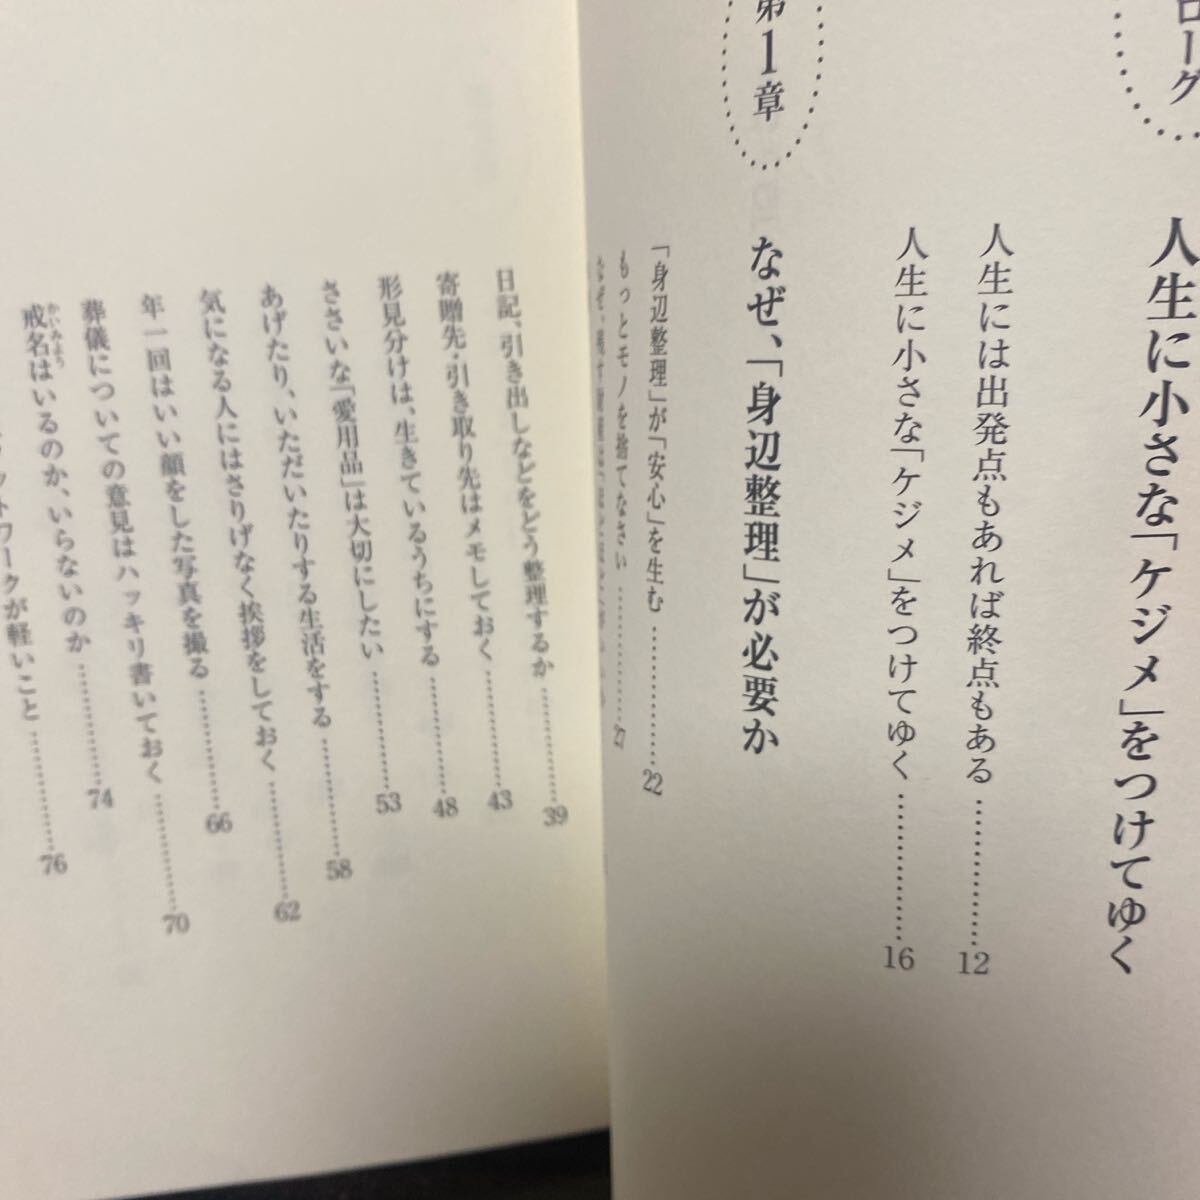 ローグ
人生に小さな「ケジメ」をつけてゆく
人生には出発点もあれば終点もある…………12
人生に小さな「ケジメ」をつけてゆく…………16
第1章
なぜ、「身辺整理」が必要か
「身辺整理」が「安心」を生む…………22
もっとモノを捨てなさい…………27
なぜ、残す
日記、引き出しなどをどう整理するか…………39
寄贈先・引き取り先はメモしておく…………43
形見分けは、生きているうちにする…………48
ささいな「愛用品」は大切にしたい…………53
あげたり、いただいたりする生活をする…………58
気になる人にはさりげなく挨拶をしておく…………62
年一回はいい顔をした写真を撮る…………66
葬儀についての意見はハッキリ書いておく…………70
戒名はいるのか、いらないのか…………74
かいみょう
ットワークが軽いこと…………76